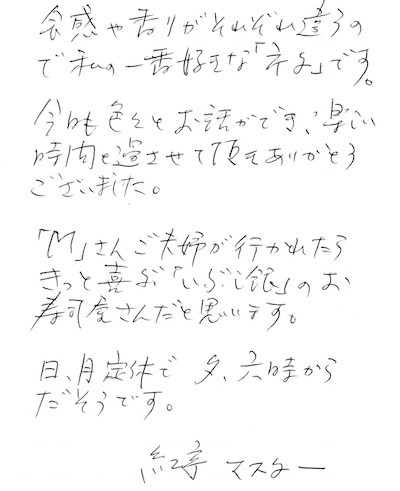 食感や香りがそれぞれ違うの
で私の一番好きな「ネタ」です。
今日も色々とお話ができ、楽しい
時間を過させて頂きありがとう
ございました。
「M」さんご夫婦が行かれたら
きっと喜ぶ「いぶし銀」のお
寿司屋さんだと思います。
日、月定休で 夕、六時から
だそうです。
紅亭 マスター